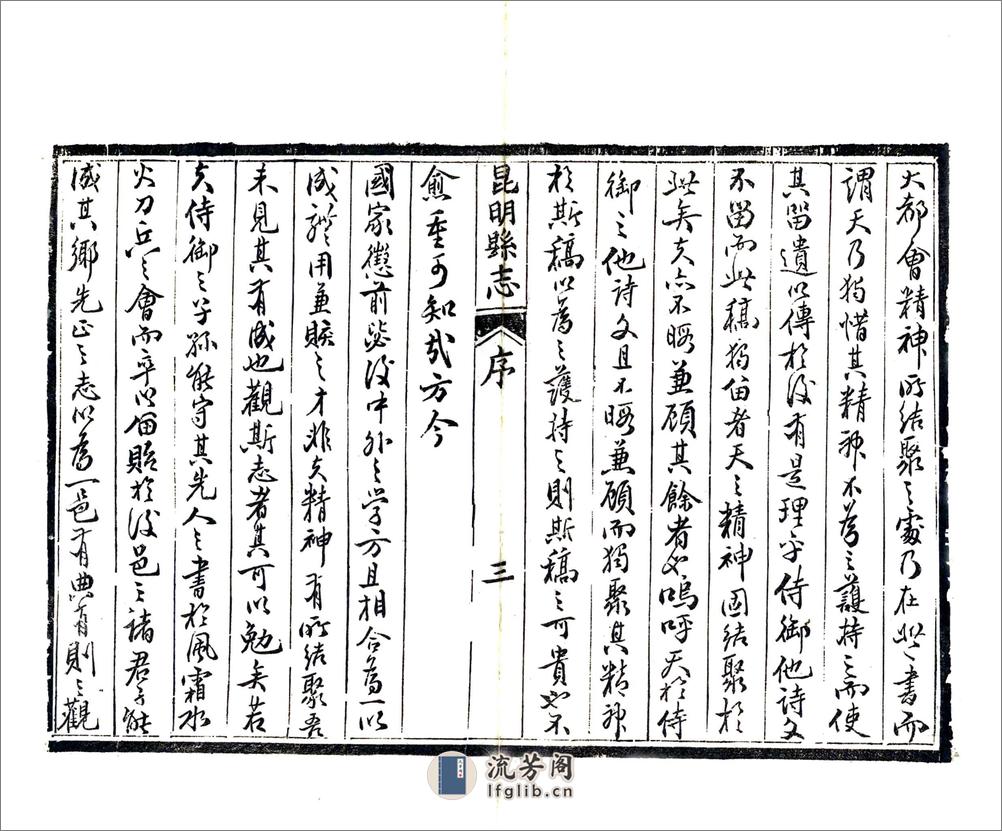 大都會精神所結聚之處乃在此一書而
謂天乃獨惜其精神不為之護持之而使
其留遺以傳於後有是理乎侍御他詩文
不留而此稿獨留者天之精神固結聚於
此矣夫亦不暇兼顧其餘者也嗚呼天於侍
御之他詩文且不暇兼顧而獨聚其精神
於斯稿以為之護持之則斯稿之可貴也不
昆明縣志 序 三
愈重可知哉方今
國家懲前毖後中外之學方且相合為一以
成龍用兼賅之才非夫精神有所結聚吾
未見其有成也觀斯志者其可以勉矣若
夫侍御之子孫能守其先人之書於風霜水
火刀兵之會而卒以留貽於後邑之諸君子能
成其鄉先正之志以為一邑有典有則之觀
流芳阁
lfglib.cn